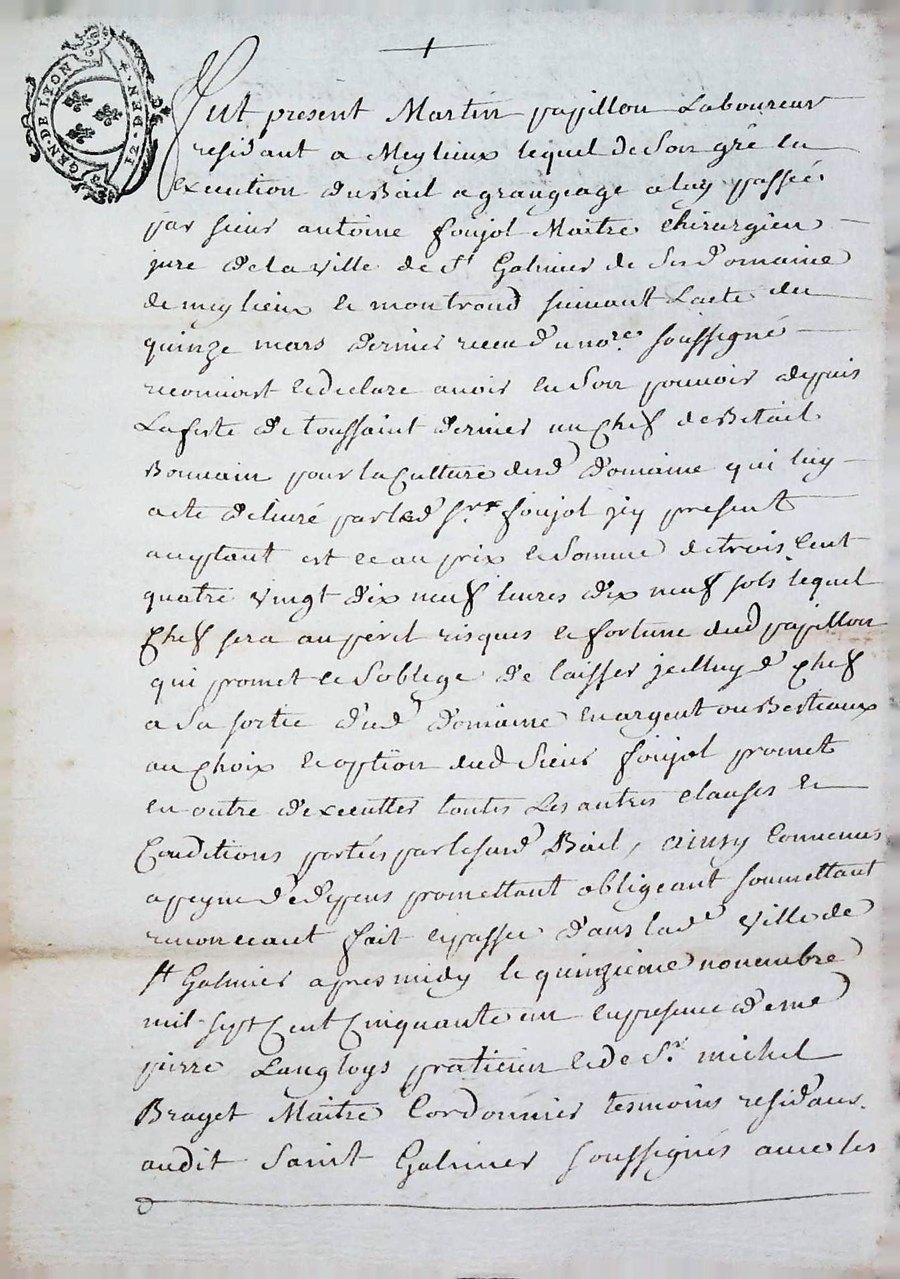 GEN. DE LYON 12. DEN.
Fut present Martin papillon Laboureur
residant a Meylieux lequel de Son gré en
execution du Bail a grangeage a luy passée
par sieur antoine foujol Maitre chirurgien
juré de la ville de St Galmier de Ses Domaine
de meylieux et montrond suivant Lacte du
quinze mars dernier receu du no.re soussigné
reconnoit et declare avoir en Son pouvoir depuis
La feste de toussaint dernier un chef de Betail
Bouvain pour la Culture dud Domaine qui luy
a ete delivré par led Sr foujol jcy present
acceptant est ce au prix et Somme de trois Cent
quatre vingt dix neuf livres dix neuf sols lequel
Chef sera au péril risques et fortune dud papillon
qui promet et Soblige de laisser jcelluy d chef
a Sa sortie dud Domaine en argent ou Bestiaux
au choix et option dud Sieur foujol promet
en outre dexecutter toutes Les autres clauses et
Conditions portées par le susd Bail, ainsy Convenus
a peyne de depens promettant obligeant soumettant
renonceant fait et passé dans lade Ville de
St Galmier apres midy le quinzieme novembre
mil sept Cent Cinquante un en presence de me
pierre Langloys praticien et de Sr michel
Braget Maitre Cordonnier tesmoins residans
audit Saint Galmier soussignés avec les